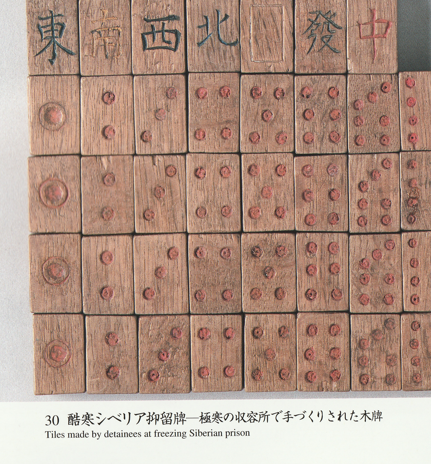 東南西北發中
30 酷寒シベリア抑留牌—極寒の収容所で手づくりされた木牌
Tiles made by detainees at freezing Siberian prison